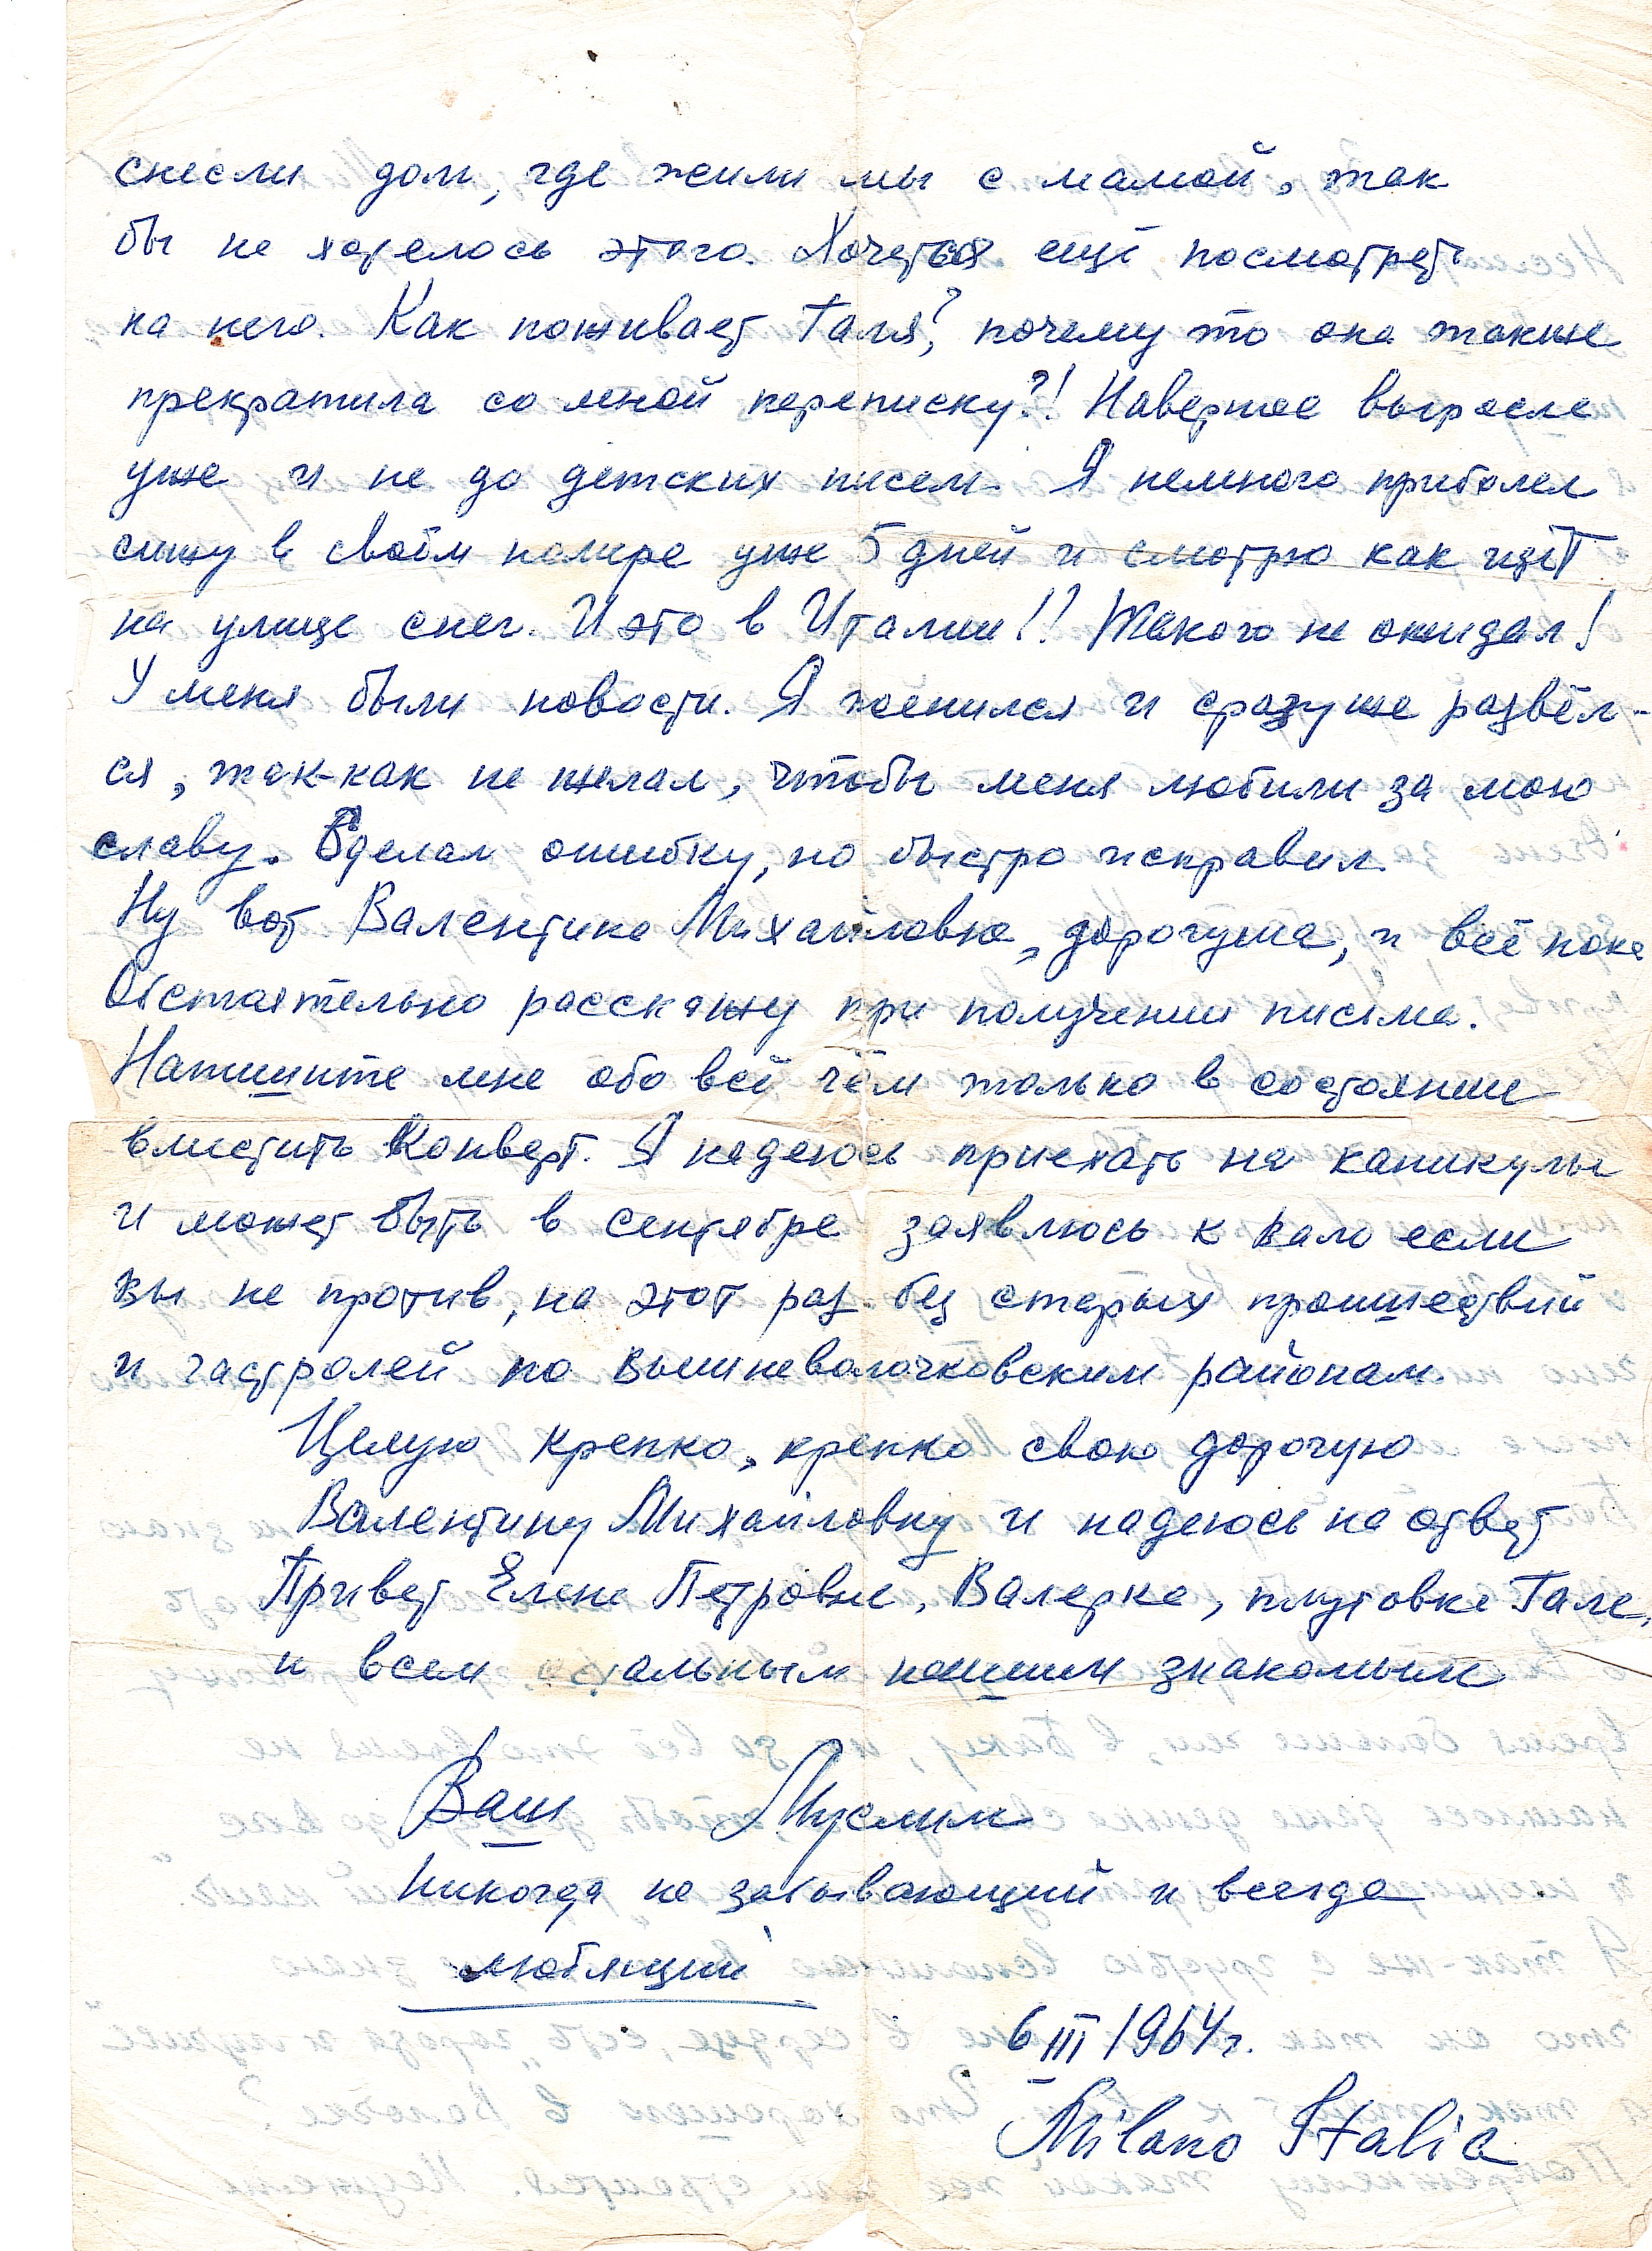 снесли дом, где жили мы с мамой, так
бы не хотелось этого. Хочется ещё посмотреть
на него. Как поживает Галя?, почему то она также
прекратила со мной переписку?! Наверное выросла
уже и не до детских писем. Я немного приболел
сижу в своём номере уже 5 дней и смотрю как идёт
на улице снег. И это в Италии!! Такого не ожидал!
У меня были новости. Я женился и сразу же развёл-
ся, так-как не желал, чтобы меня любили за мою
славу. Сделал ошибку, но быстро исправил.
Ну вот Валентина Михайловна, дорогуша, и всё пока
Обстоятельно расскажу при получении письма.
Напишите мне обо всё чём только в состоянии
вместить конверт. Я надеюсь приехать на каникулы
и может быть в сентябре заявлюсь к вам если
вы не против, на этот раз без старых проишествий
и гастролей по вышневолочковским районам.
Целую крепко, крепко свою дорогую
Валентину Михайловну и надеюсь на ответ
Привет Елене Петровне, Валерке, плутовке Гале,
и всем остальным нашим знакомым
Ваш Муслим
Никогда не забывающий и всегда
любящий
6 III 1964г.
Milano Italia